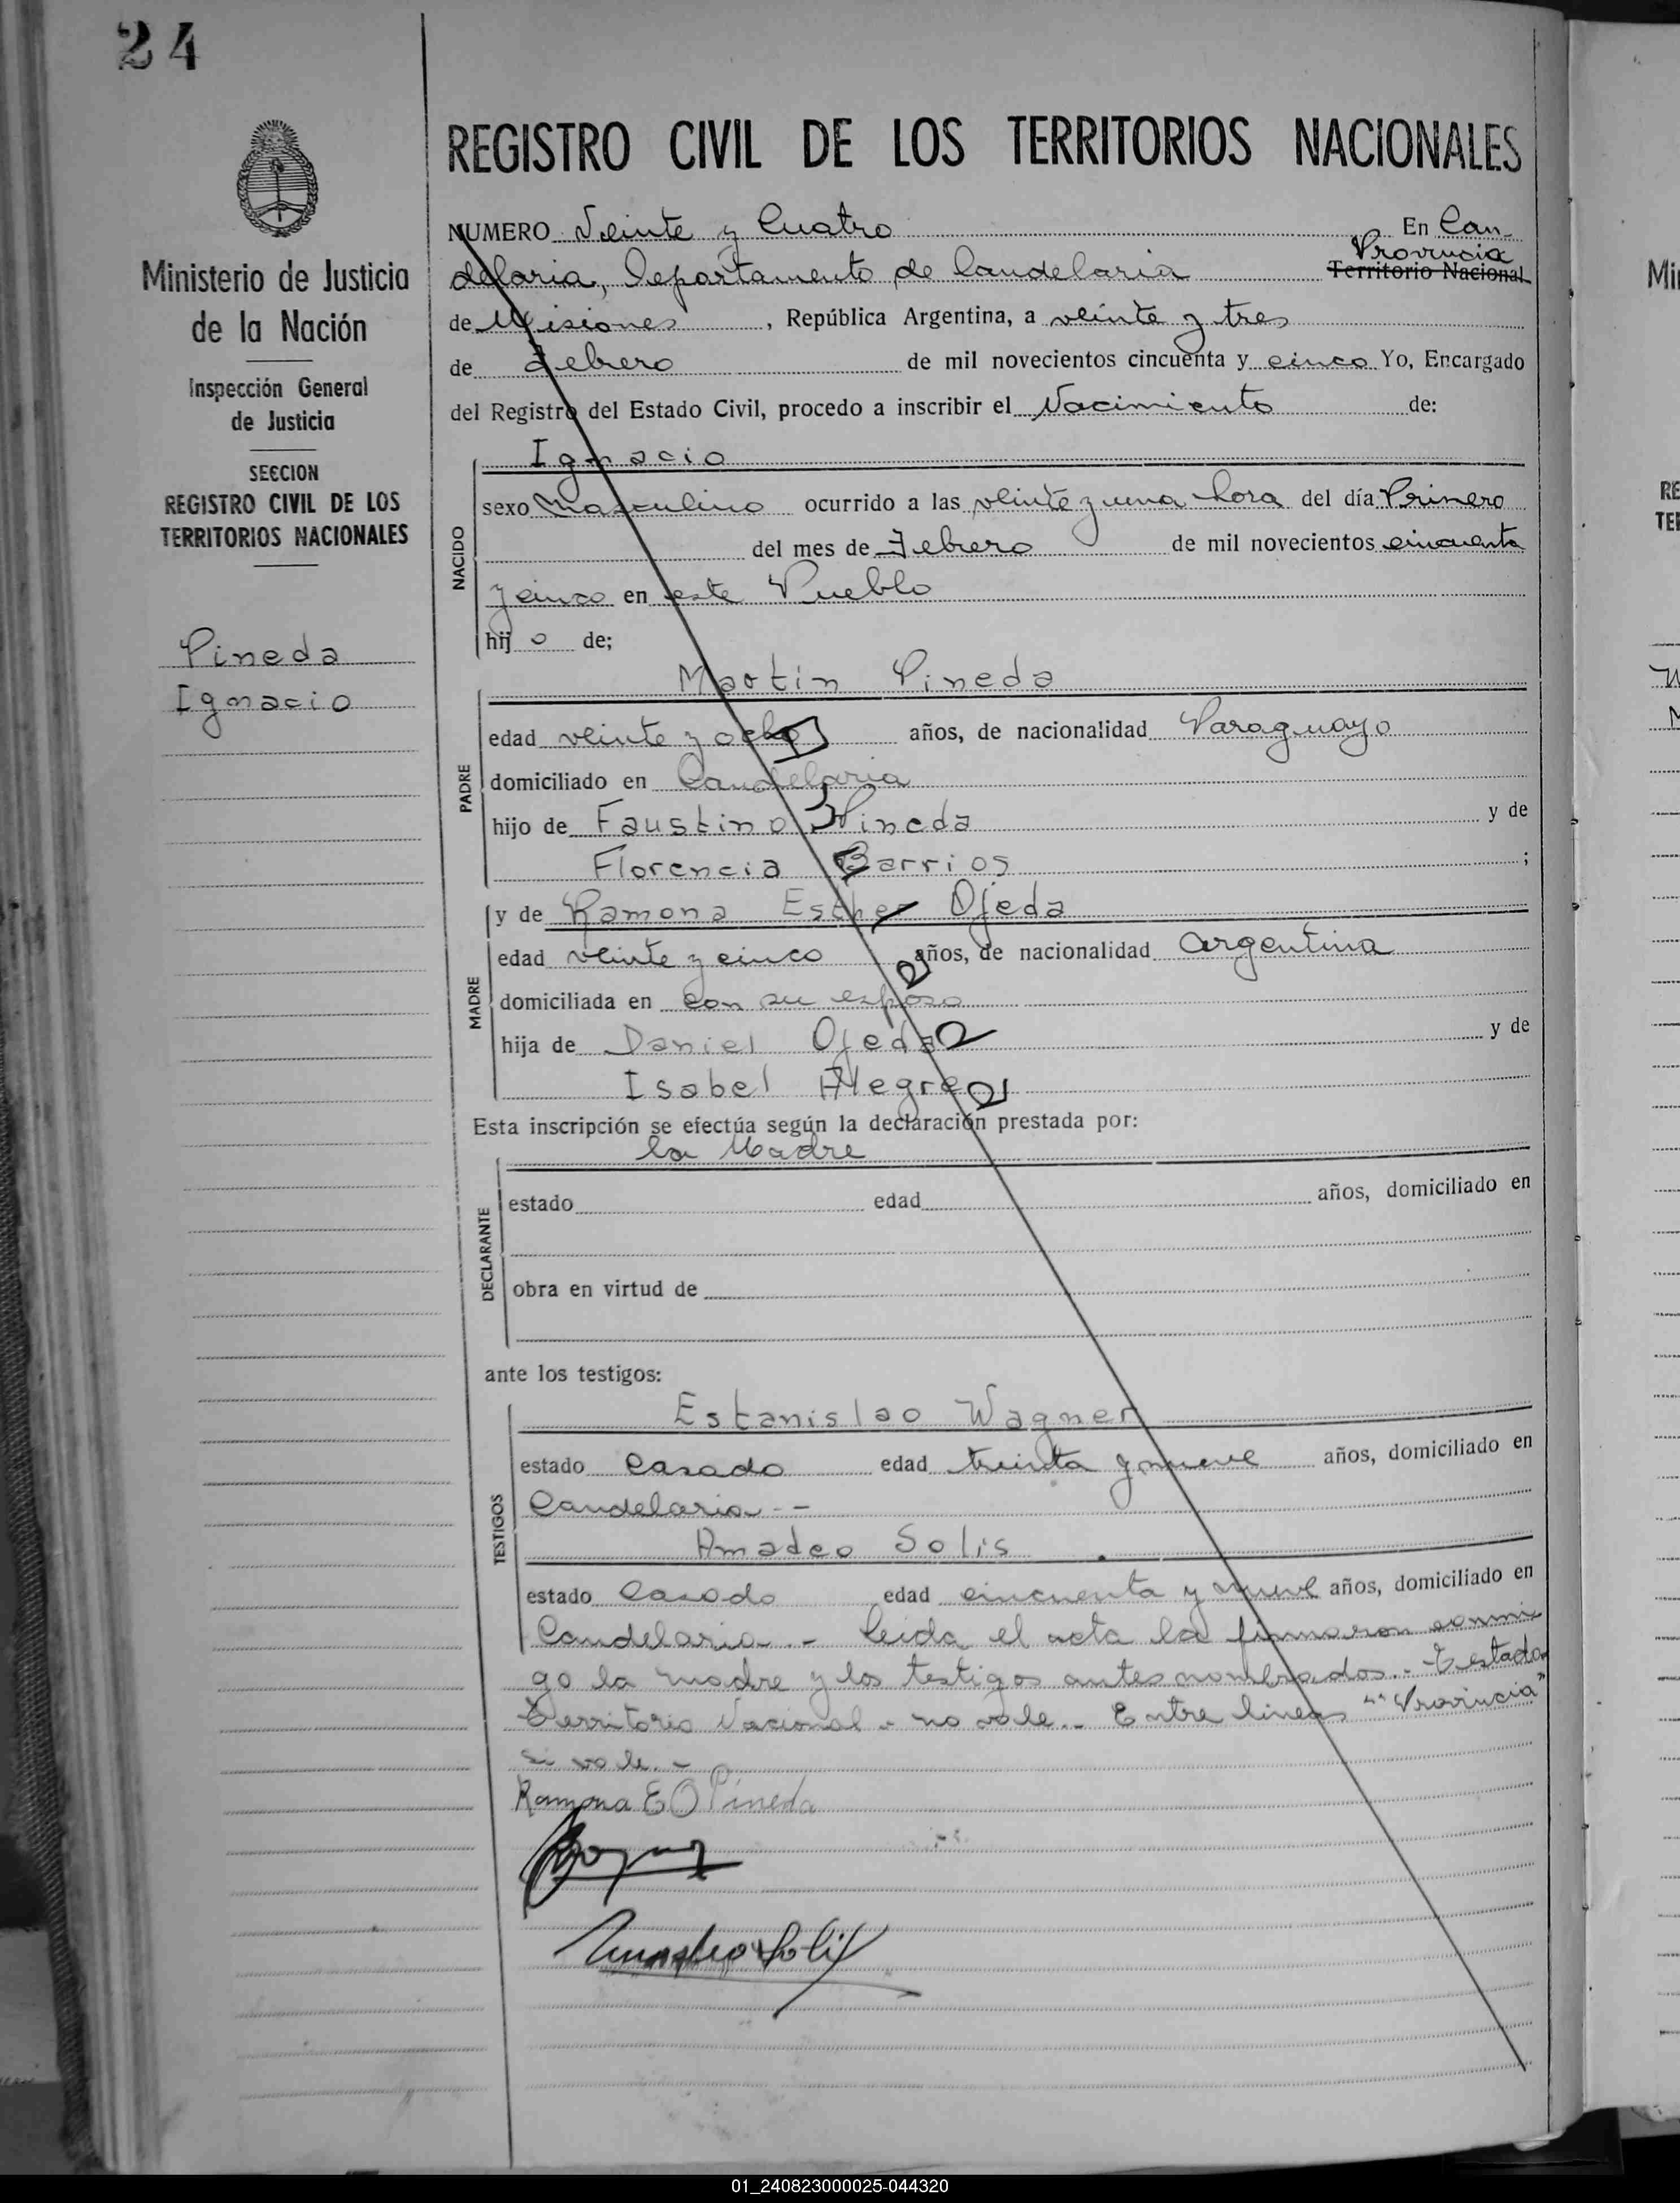 24
REGISTRO CIVIL DE LOS TERRITORIOS NACIONALES
Ministerio de Justicia
de la Nación
Inspección General
de Justicia
SECCION
REGISTRO CIVIL DE LOS
TERRITORIOS NACIONALES
Pineda
Ignacio
NUMERO Veinte y Cuatro En Can-
delaria, Departamento de Candelaria Provincia Territorio Nacional
de Misiones, República Argentina, a veinte y tres
de Febrero de mil novecientos cincuenta y cinco Yo, Encargado
del Registro del Estado Civil, procedo a inscribir el Nacimiento de:
NACIDO
Ignacio
sexo Masculino ocurrido a las veinte y una hora del día Primero
del mes de Febrero de mil novecientos cincuenta
y cinco en este Pueblo
hij o de;
PADRE
Martin Pineda
edad veinte y ocho años, de nacionalidad Paraguayo
domiciliado en Candelaria
hijo de Faustino Pineda y de
Florencia Barrios ;
MADRE
y de Ramona Esther Ojeda
edad veinte y cinco años, de nacionalidad Argentina
domiciliada en con su esposo
hija de Daniel Ojeda y de
Isabel Alegre
Esta inscripción se efectúa según la declaración prestada por:
la Madre
DECLARANTE
estado edad años, domiciliado en
obra en virtud de
ante los testigos:
TESTIGOS
Estanislao Wagner
estado Casado edad treinta y nueve años, domiciliado en
Candelaria.--
Amadeo Solis
estado Casado edad cincuenta y nueve años, domiciliado en
Candelaria.- Leida el acta la firmaron conmi
go la madre y los testigos antes nombrados.- Testado
Territorio Nacional - no vale.- Entre lineas "Provincia"
si vale.-
Ramona E O Pineda
Amadeo Solis
01_240823000025-044320